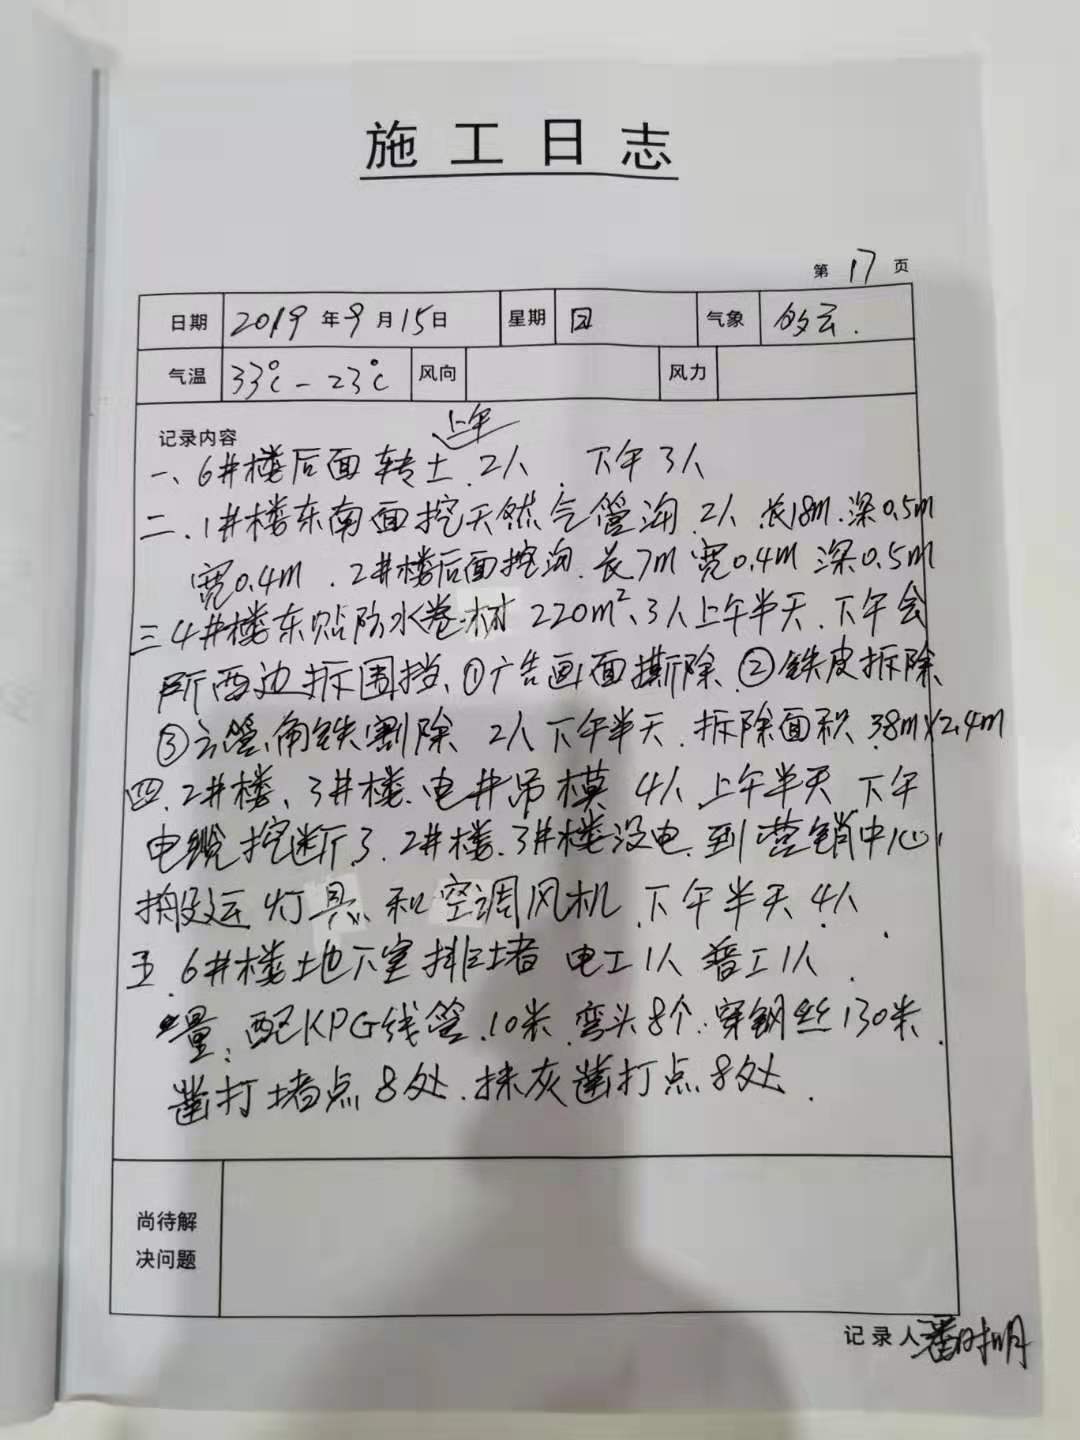 施工日志
第 17 页
日期 2019 年 9 月 15 日 星期 日 气象 多云.
气温 33℃-23℃ 风向 风力
记录内容
上午
一、6#楼后面转土.2人.下午3人
二.1#楼东南面挖天然气管沟.2人.长18m.深0.5m
宽0.4m.2#楼后面挖沟.长7m宽0.4m深0.5m
三4#楼东贴防水卷材220m²、3人上午半天.下午会
所西边拆围挡、①广告画面撕除.②铁皮拆除
③方管、角铁割除 2人下午半天.拆除面积38m×2.4m
四.2#楼、3#楼.电井吊模 4人.上午半天.下午
电缆挖断了.2#楼.3#楼没电.到营销中心,
搬运灯具和空调风机.下午半天.4人.
五.6#楼地下室排堵 电工1人 普工1人.
量:配KPG线管.10米.弯头8个.穿钢丝130米.
凿打堵点8处.抹灰凿打点8处.
尚待解
决问题
记录人